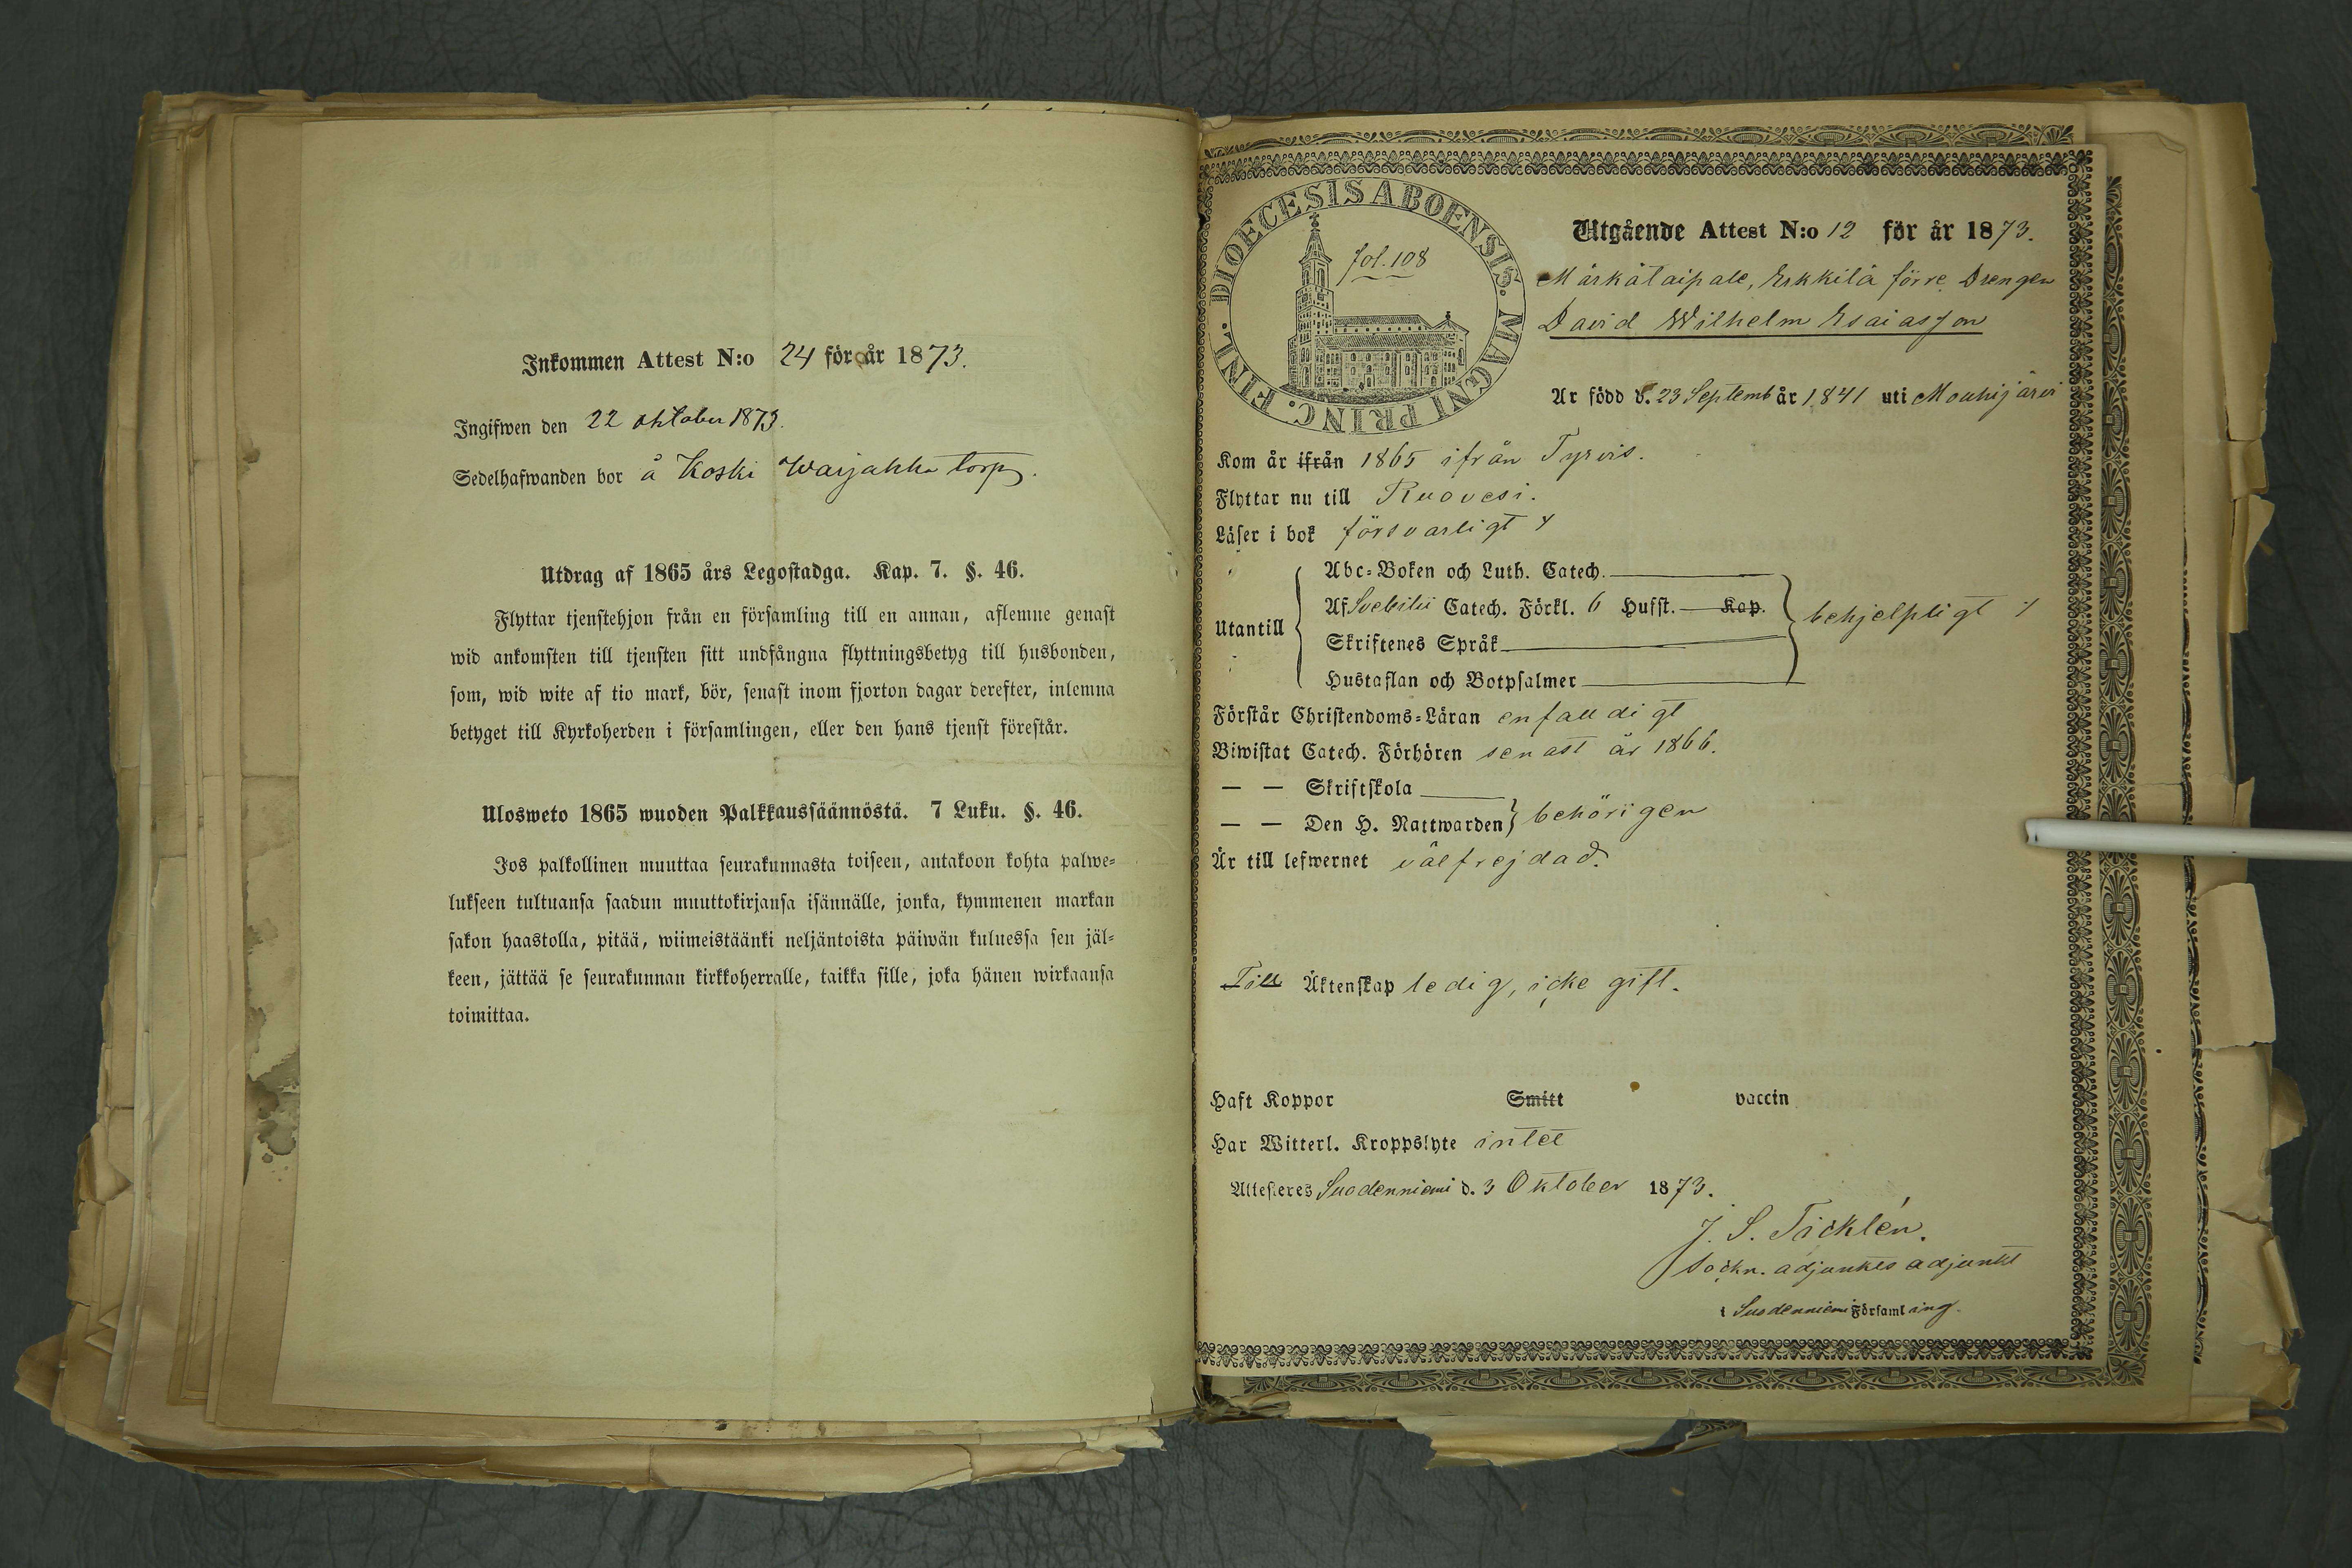 Inkommen Attest N:o 24 för år 1873.
Ingifwen den 22 oktober 1873.
Sedelhafwanden bor å Koski Warjakka torp.
Utdrag af 1865 års Legostadga. Kap. 7. §. 46.
Flyttar tjenstehjon från en församling till en annan, aflemne genast
wid ankomsten till tjensten sitt undfångna flyttningsbetyg till husbonden,
som, wid wite af tio mark, bör, senast inom fjorton dagar derefter, inlemna
betyget till Kyrkoherden i församlingen, eller den hans tjenst förestår.
Ulosweto 1865 wuoden Palkkaussäännöstä. 7 Luku. §. 46.
Jos palkollinen muuttaa seurakunnasta toiseen, antakoon kohta palwe-
lukseen tultuansa saadun muuttokirjansa isännälle, jonka, kymmenen markan
sakon haastolla, pitää, wiimeistäänki neljäntoista päiwän kuluessa sen jäl-
keen, jättää se seurakunnan kirkkoherralle, taikka sille, joka hänen wirkaansa
toimittaa.
DIOECESIS ABOENSIS. MAGNI PRINC. FINL.
fol. 108
Utgående Attest N:o 12 för år 1873.
Märkätaipale, Erkkilä förre Drengen
David Wilhelm Esaiasson
Är född d. 23 Septemb år 1841 uti Mouhijärvi
Kom år ifrån 1865 ifrån Tyrvis.
Flyttar nu till Ruovesi.
Läser i bok försvarligt
Utantill
Abc-Boken och Luth. Catech.
Af Svebilii Catech. Förkl. 6 Hufst. Kap.
behjelpligt
Skriftenes Språk
Hustaflan och Botpsalmer
Förstår Christendoms-Läran enfaldigt
Biwistat Catech. Förhören senast år 1866.
— — Skriftskola
— — Den H. Nattwarden behörigen
Är till lefwernet välfrejdad.
Till Äktenskap ledig, icke gift.
Haft Koppor Smitt vaccin
Har Witterl. Kroppslyte intet
Attesteres Suodenniemi d. 3 Oktober 1873.
J. S. Täcklén.
Sockn. adjunkts adjunkt
i Suodenniemi Församling.